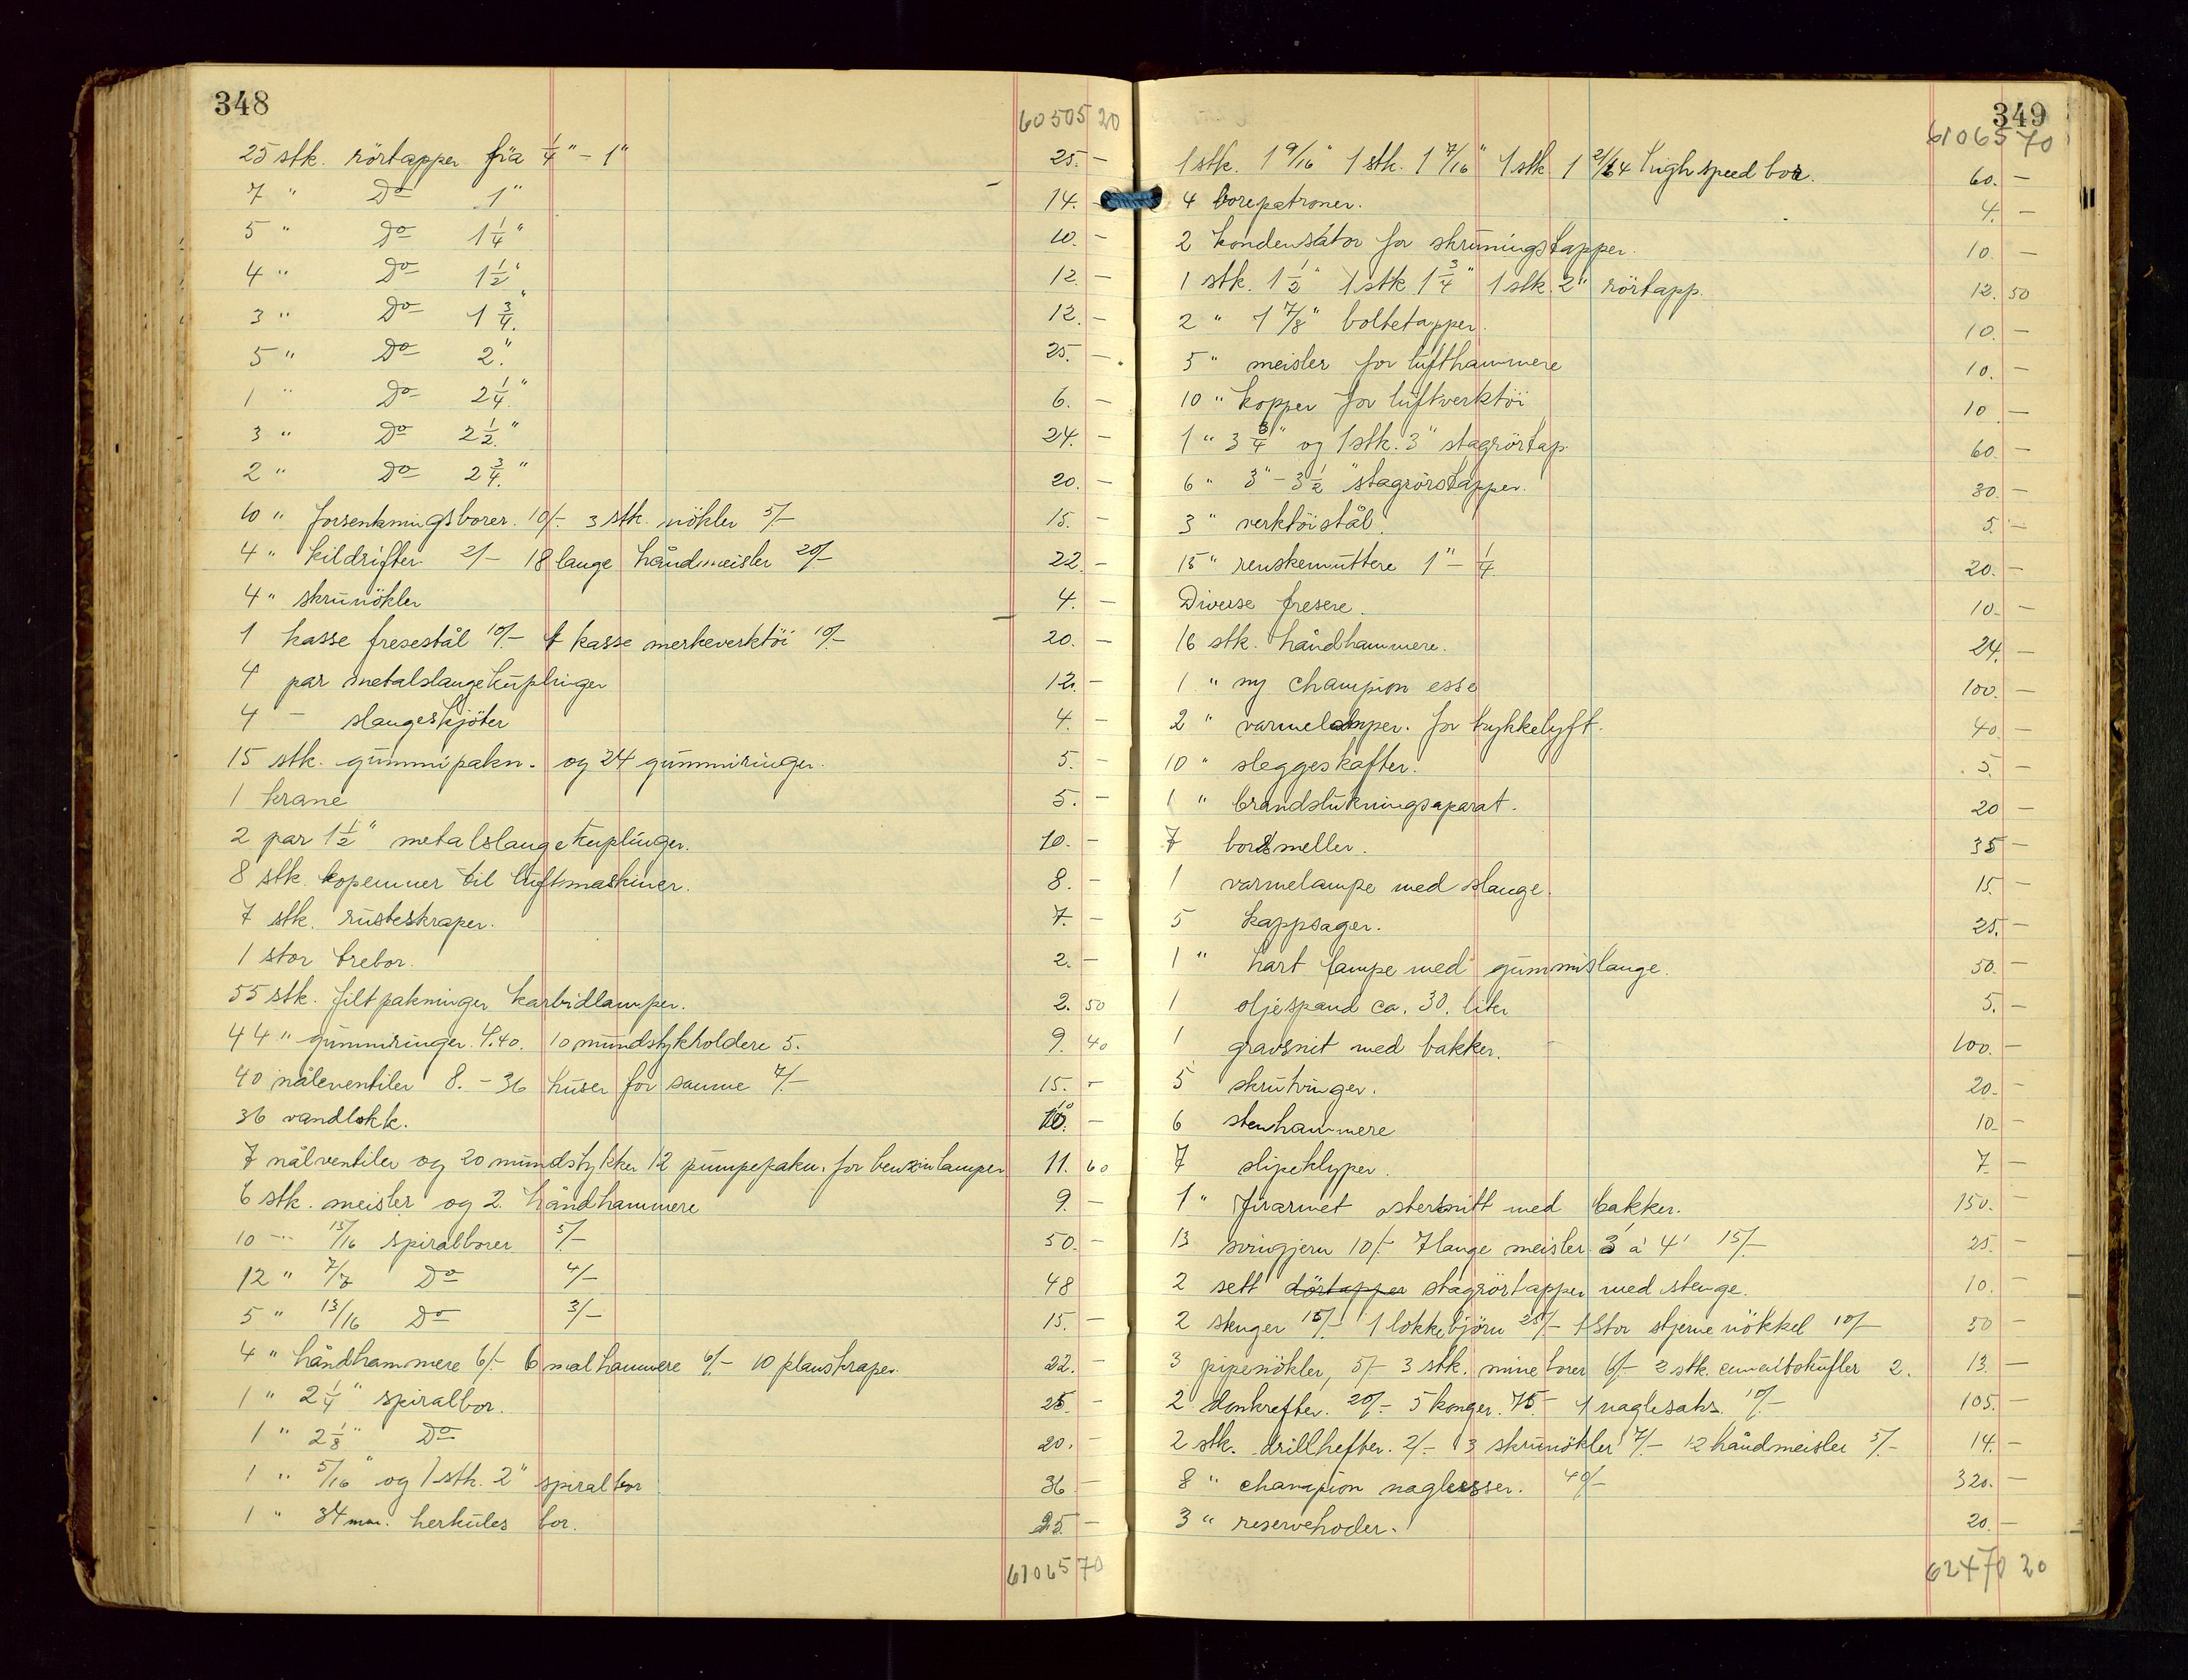 348
60505 20
25 stk. rörtapper fra 1/4" - 1" 25. -
7 " Do 1" 14. -
5 " Do 1 1/4" 10. -
4 " Do 1 1/2" 12. -
3 " Do 1 3/4" 12. -
5 " Do 2" 25. -
1 " Do 2 1/4" 6. -
3 " Do 2 1/2" 24. -
2 " Do 2 3/4" 20. -
10 " forsenkningsborer. 10/- 3 stk. nökler 5/- 15. -
4 " kildrifter 2/- 18 lange håndmeisler 20/- 22. -
4 " skrunökler 4. -
1 kasse fresestål 10/- 1 kasse merkeverktöi 10/- 20. -
4 par metalslangekuplinger 12. -
4 - slangeskjöter 4. -
15 stk. gummipakn. og 24 gummiringer. 5. -
1 krane 5. -
2 par 1 1/2" metalslangekuplinger. 10. -
8 stk. kopemner til luftmaskiner. 8. -
7 stk. rusteskraper. 7. -
1 stor trebor. 2. -
55 stk. filtpakninger karbidlamper. 2. 50
44 " gummiringer. 4.40. 10 mundstykholdere 5. 9. 40
40 nåleventiler 8. - 36 huser for samme 7/- 15. -
36 vandlokk. 10. -
7 nålventiler og 20 mundstykker 12 pumpepakn. for benzinlamper 11. 60
6 stk. meisler og 2 håndhammere 9. -
10 " 15/16 spiralborer 5/- 50. -
12 " 7/8 Do 4/- 48
5 " 13/16 Do 3/- 15. -
4 " håndhammere 6/- 6 malhammere 6/- 10 planskraper. 22. -
1 " 2 1/4" spiralbor. 25. -
1 " 2 1/8" Do 20. -
1 " 5/16" og 1 stk. 2" spiralbor 36 -
1 " 34 mm. herkules bor. 25. -
61065 70
349
61065 70
1 stk. 1 9/16" 1 stk. 1 7/16" 1 stk 1 21/64 high speed bor. 60. -
4 borepatroner. 4. -
2 kondensator for skruningstapper. 10. -
1 stk. 1 1/2" 1 stk 1 3/4" 1 stk. 2" rörtapp. 12. 50
2 " 1 7/8" boltetapper. 10. -
5 " meisler for lufthammere 10. -
10 " kopper for luftverktöi 10. -
1 " 3 3/4" og 1 stk. 3" stagrörtap. 60. -
6 " 3" - 3 1/2" stagrörstapper. 30. -
3 " verktöistål. 5. -
15 " renskemuttere 1" - 1/4 20. -
Diverse fresere. 10. -
16 stk. håndhammere. 24. -
1 " ny champion esse 100. -
2 " varmelamper. for trykkelyft. 40. -
10 " sleggeskafter. 5. -
1 " brandslukningsaparat. 20 -
7 borsmeller. 35 -
1 varmelampe med slange. 15. -
5 kappsager. 25. -
1 " hart lampe med gummislange. 50. -
1 oljespand ca. 30. liter 5. -
1 gravsnit med bakker. 100. -
5 skrutvinger. 20. -
6 stenhammere 10. -
7 slipeklyper. 7. -
1 " firarmet ostersnitt med bakker. 150. -
13 svingjern 10/- 7 lange meisler 3 á 4' 15/- 25. -
2 sett dörtapper stagrörtapper med stenge. 10. -
2 stenger 15/- 1 lokkebjörn 25/- 1 stor stjernenökkel 10/- 50 -
3 pipenökler, 5/- 3 stk. mineborer 6/- 2 stk. 2. 13. -
2 donkrefter. 20/- 5 konger. 75.- 1 naglesaks. 10/- 105. -
2 stk. drillhefter. 2/- 3 skrunökler 7/- 12 håndmeisler 5/- 14. -
8 " champion naglesser. 40/- 320. -
3 " reservehoder. 20. -
62470 20